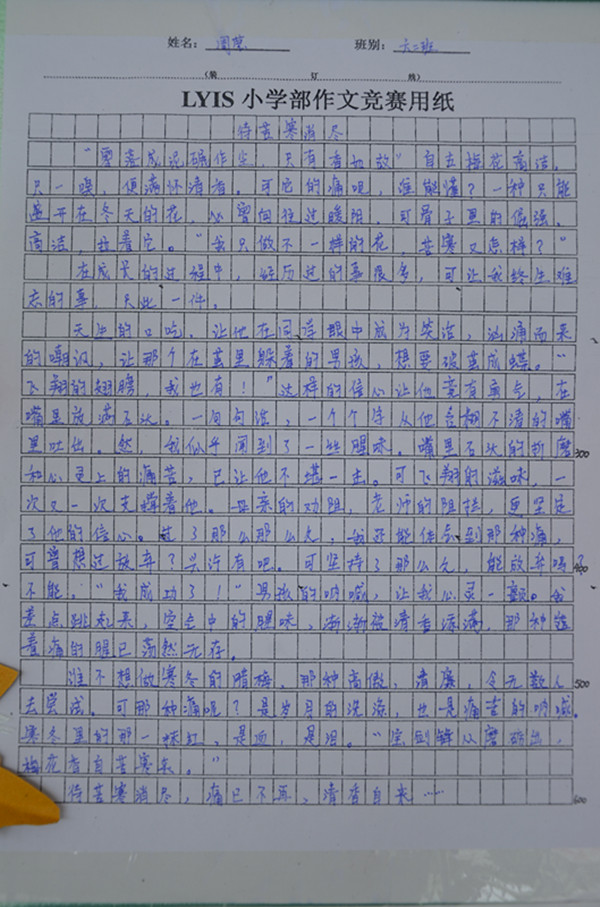 姓名： 周慧 班别： 六二班
（装 订 线）
LYIS 小学部作文竞赛用纸
待苦寒消尽
“零落成泥碾作尘，只有香如故”自古梅花高洁，
只一嗅，便满怀清香。可它的痛呢，谁能懂？一种只能
盛开在冬天的花，心曾向往过暖阳，可骨子里的倔强、
高洁，拉着它。“我只做不一样的花，苦寒又怎样？”
在成长的过程中，经历过的事很多，可让我终生难
忘的事，只此一件。
天生的口吃，让他在同学眼中成为笑话，汹涌而来
的嘲讽，让那个在茧里躲着的男孩，想要破茧成蝶。“
飞翔的翅膀，我也有！”这样的信心让他竟有勇气，在
嘴里放满石头。一句句话，一个个字从他含糊不清的嘴
里吐出。然，我似乎闻到了一丝腥味。嘴里石头的折磨 300
和心灵上的痛苦，已让他不堪一击。可飞翔的滋味，一
次又一次支撑着他。母亲的劝阻，老师的阻拦，更坚定
了他的信心。过了那么那么久，我还能体会到那种痛，
可曾想过放弃？兴许有吧。可坚持了那么久，能放弃吗？ 400
不能。“我成功了！”男孩的呐喊，让我心灵一颤。我
差点跳起来，空气中的腥味，渐渐被清香添满，那种
着痛的腥已荡然无存。
谁不想做寒冬的腊梅，那种高傲，清廉，令无数人 500
去尝试。可那种痛呢？是岁月的洗涤，也是痛苦的呐喊。
寒冬里的那一抹红，是血，是泪。“宝剑锋从磨砺出，
梅花香自苦寒来。”
待苦寒消尽，痛已不再，清香自来…… 600